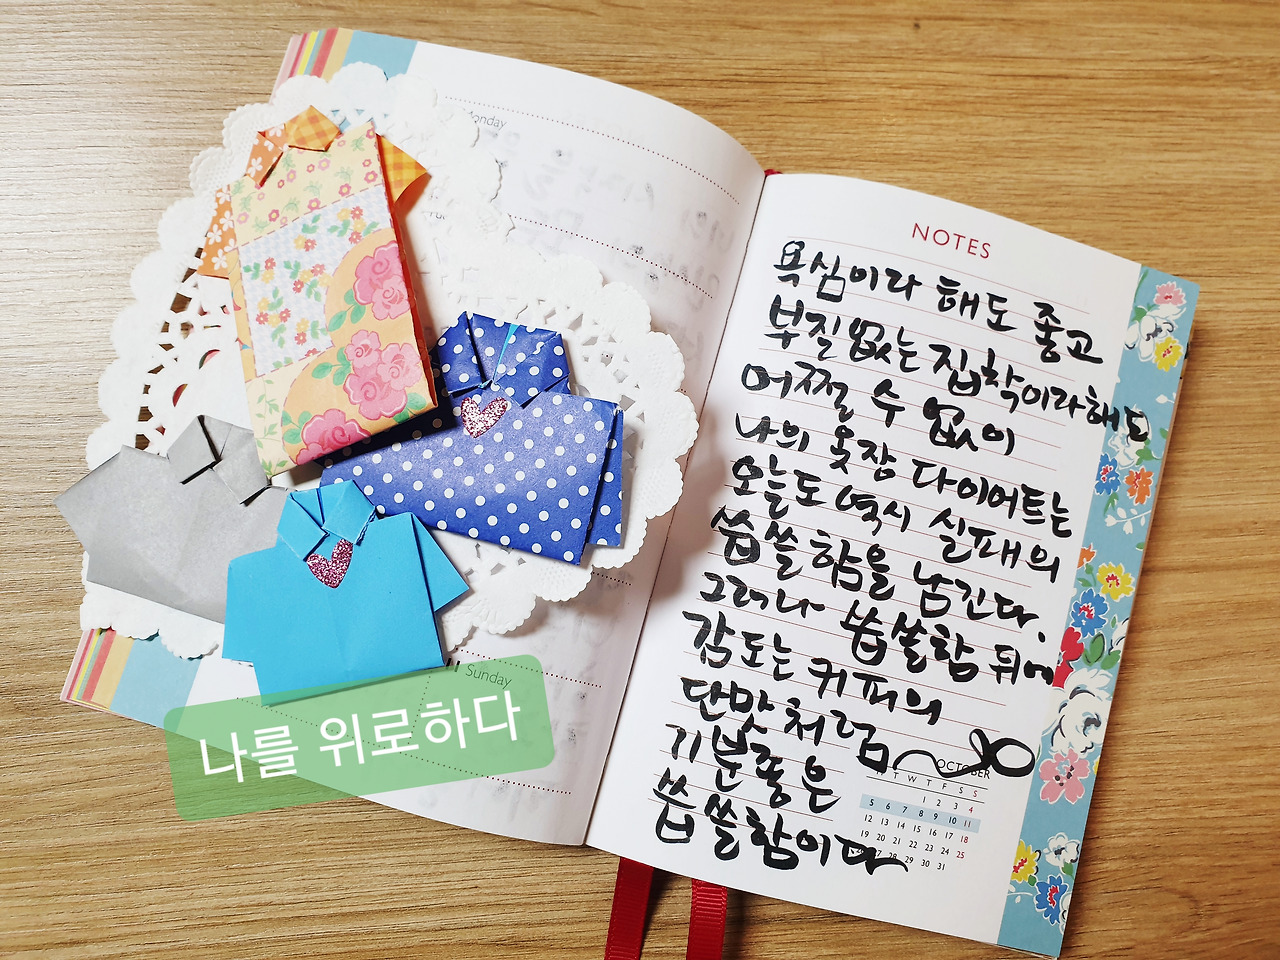 Monday
Sunday
나를 위로하다
NOTES
욕심이라 해도 좋고
부질없는 집착이라해도
어쩔 수 없이
나의 옷장 다이어트는
오늘도 역시 실패의
씁쓸함을 남긴다.
그러나 씁쓸함 뒤에
감도는 커피의
단맛처럼
기분좋은
씁쓸함이다
OCTOBER
T W T F S S
1 2 3 4
5 6 7 8 9 10 11
12 13 14 15 16 17 18
19 20 21 22 23 24 25
27 28 29 30 31